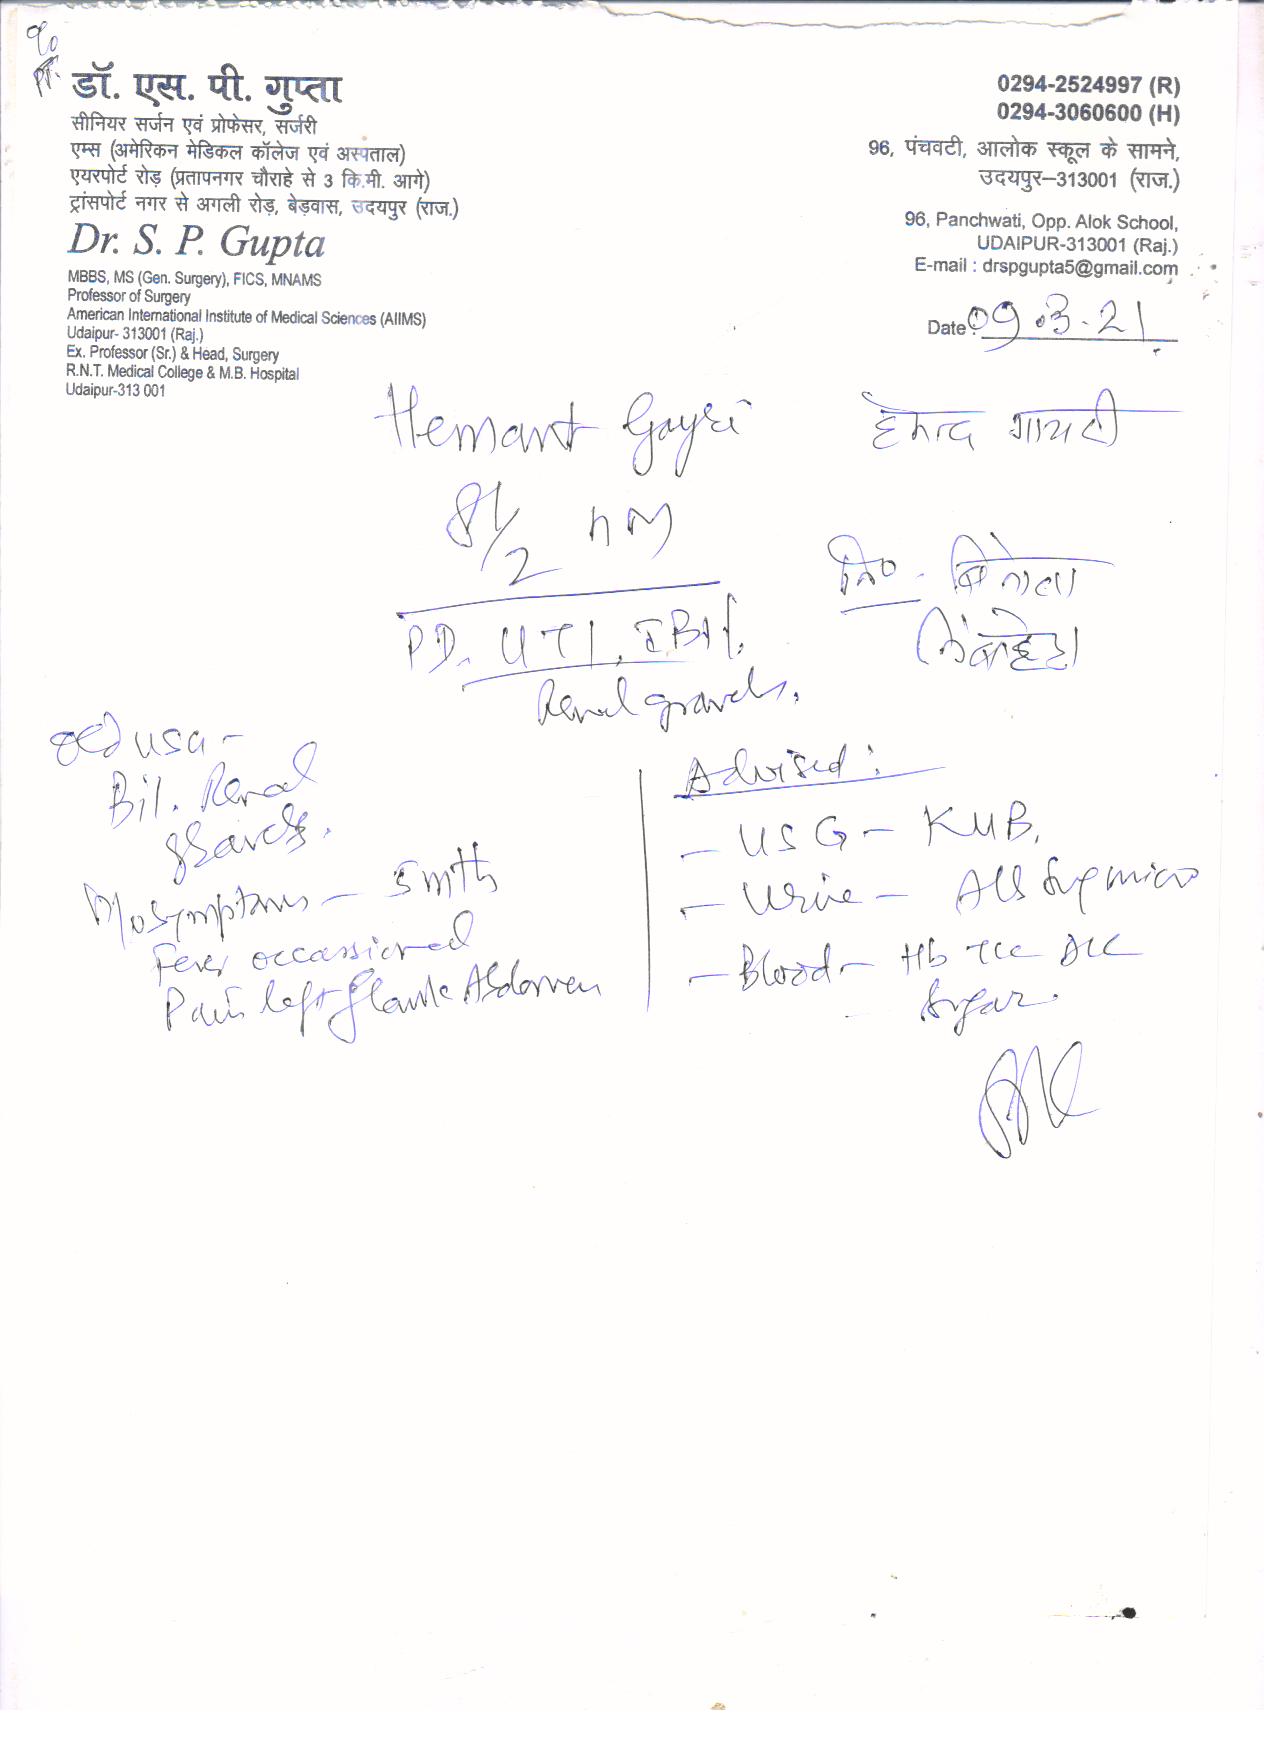 डॉ. एस. पी. गुप्ता
सीनियर सर्जन एवं प्रोफेसर, सर्जरी
एम्स (अमेरिकन मेडिकल कॉलेज एवं अस्पताल)
एयरपोर्ट रोड़ (प्रतापनगर चौराहे से 3 कि.मी. आगे)
ट्रांसपोर्ट नगर से अगली रोड़, बेड़वास, उदयपुर (राज.)
Dr. S. P. Gupta
MBBS, MS (Gen. Surgery), FICS, MNAMS
Professor of Surgery
American International Institute of Medical Sciences (AIIMS)
Udaipur- 313001 (Raj.)
Ex. Professor (Sr.) & Head, Surgery
R.N.T. Medical College & M.B. Hospital
Udaipur-313 001
0294-2524997 (R)
0294-3060600 (H)
96, पंचवटी, आलोक स्कूल के सामने,
उदयपुर–313001 (राज.)
96, Panchwati, Opp. Alok School,
UDAIPUR-313001 (Raj.)
E-mail : drspgupta5@gmail.com
Date : 09.3.21
Hemant Gayri
8 1/2
PD. UTI,
Renal gravels.
USG -
Bil. Renal
gravels.
symptoms - 5 mth
Fever occassional
Pain left flank Abdomen
Advised :
- USG - KUB.
- Urine - Alb Sug micro
- Blood - Hb TLC DLC
Sugar.